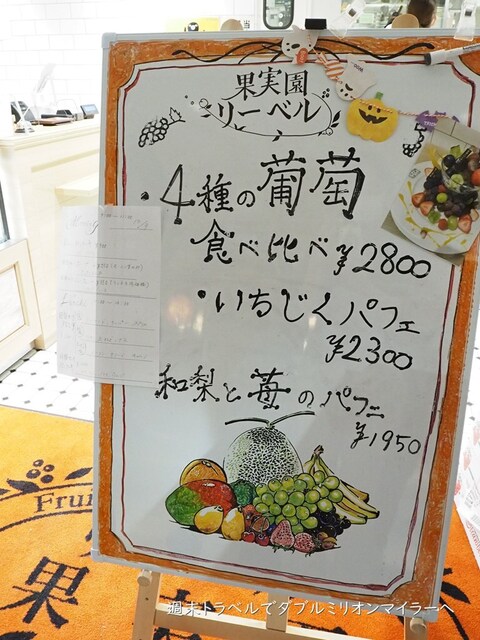 果実園
リーベル
・4種の葡萄
食べ比べ ¥2800
・いちじくパフェ
¥2300
和梨と苺のパフェ
¥1950
Fru
果
週末トラベルでダブルミリオンマイラーへ